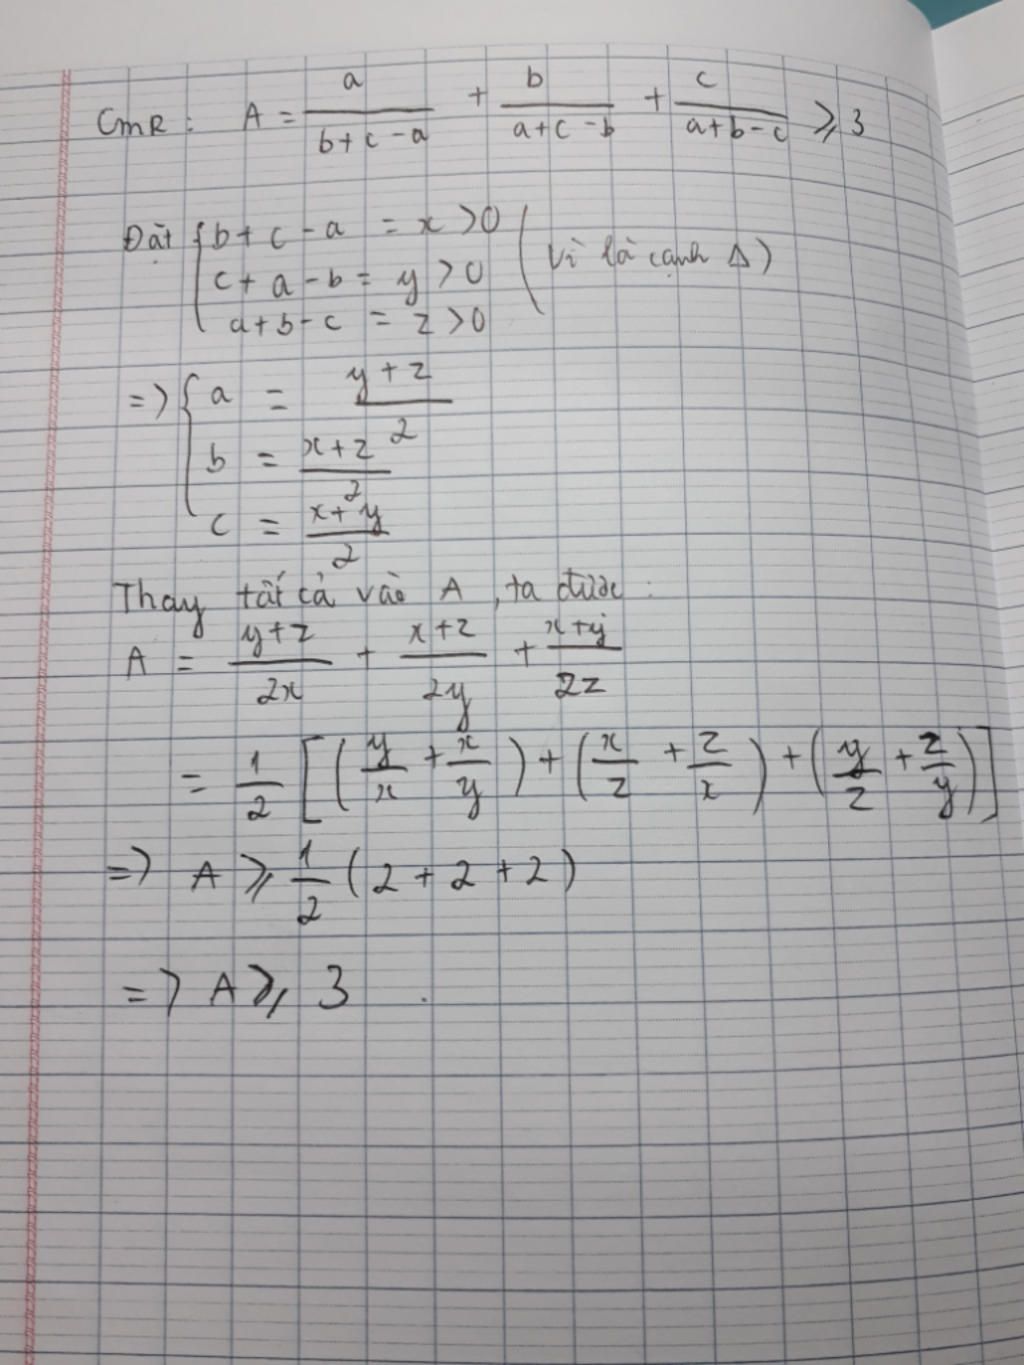 CmR: A = a/(b+c-a) + b/(a+c-b) + c/(a+b-c) ⩾ 3
Đặt { b+c-a = x >0 (vì là cạnh Δ)
c+a-b = y >0
a+b-c = z >0
=> { a = (y+z)/2
b = (x+z)/2
c = (x+y)/2
Thay tất cả vào A, ta được:
A = (y+z)/2x + (x+z)/2y + (x+y)/2z
= 1/2 [(y/x + x/y) + (x/z + z/x) + (y/z + z/y)]
=> A ⩾ 1/2 (2+2+2)
=> A ⩾ 3.